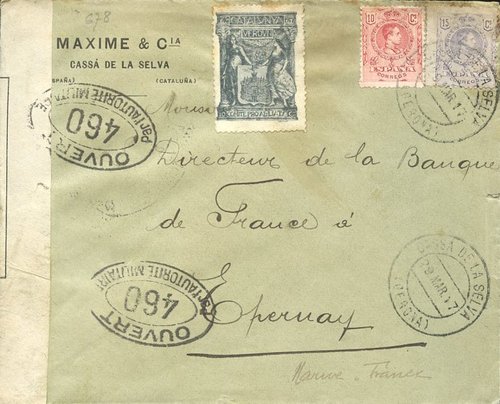 678
MAXIME & CIA
CASSÁ DE LA SELVA
(ESPAÑA) (CATALUÑA)
CATALUNYA
VERDUN
10 Cs
ESPAÑA
CORREOS
15 Cs
ESPAÑA
CORREOS
CASSA DE LA SELVA
MAR.17
(GERONA)
OUVERT
460
par l'AUTORITÉ MILITAIRE
Directeur de la Banque
de France á
Epernay
Marne. France
OUVERT
460
par l'AUTORITÉ MILITAIRE
CASSA DE LA SELVA
MAR.17
(GERONA)